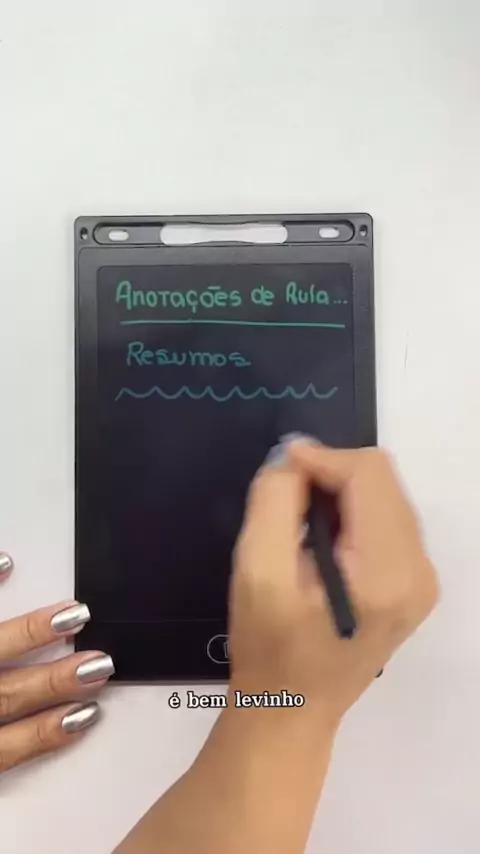 Anotações de Aula...
Resumos
é bem levinho